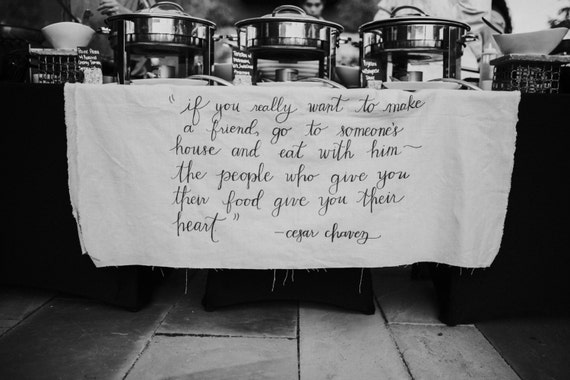 "if you really want to make
a friend, go to someone's
house and eat with him~
the people who give you
their food give you their
heart"
-cesar chavez